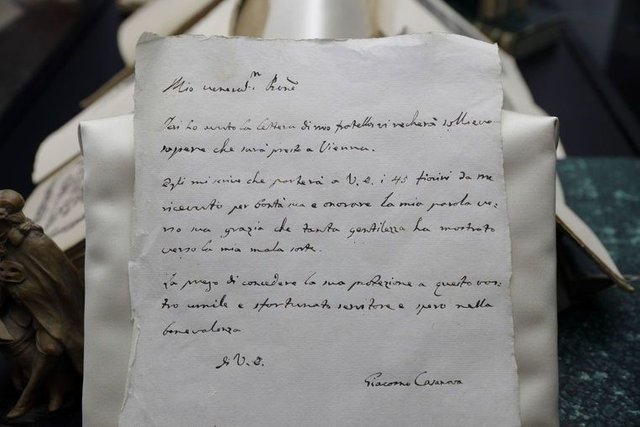 Mio venerat.mo Pnne
Ieri ho avuto la lettera di mio fratello vi recherà sollievo
sapere che sarà presto a Vienna.
Egli mi scrive che porterà a V. E. i 45 fiorini da me
ricevuto per bontà sua e onorare la mia parola ve
rso sua grazia che tanta gentilezza ha mostrato
verso la mia mala sorte.
La prego di concedere la sua protezione a questo vos
tro umile e sfortunato servitore e spero nella
benevolenza
di V. E.
Giacomo Casanova